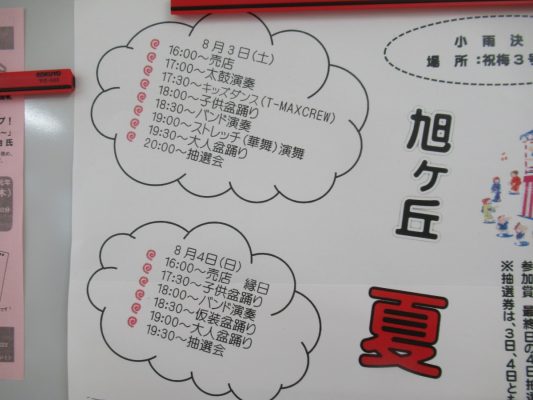 8月3日(土)
16:00~売店
17:00~太鼓演奏
17:30~キッズダンス(T-MAXCREW)
18:00~子供盆踊り
18:30~バンド演奏
19:00~ストレッチ(華舞)演舞
19:30~大人盆踊り
20:00~抽選会
8月4日(日)
16:00~売店 縁日
17:30~子供盆踊り
18:00~バンド演奏
18:30~仮装盆踊り
19:00~大人盆踊り
19:30~抽選会
小雨決
場所:祝梅3号
旭ヶ丘
夏
参加賞 最終日の4日抽選
※抽選券は、3日、4日とも
KOKUYO